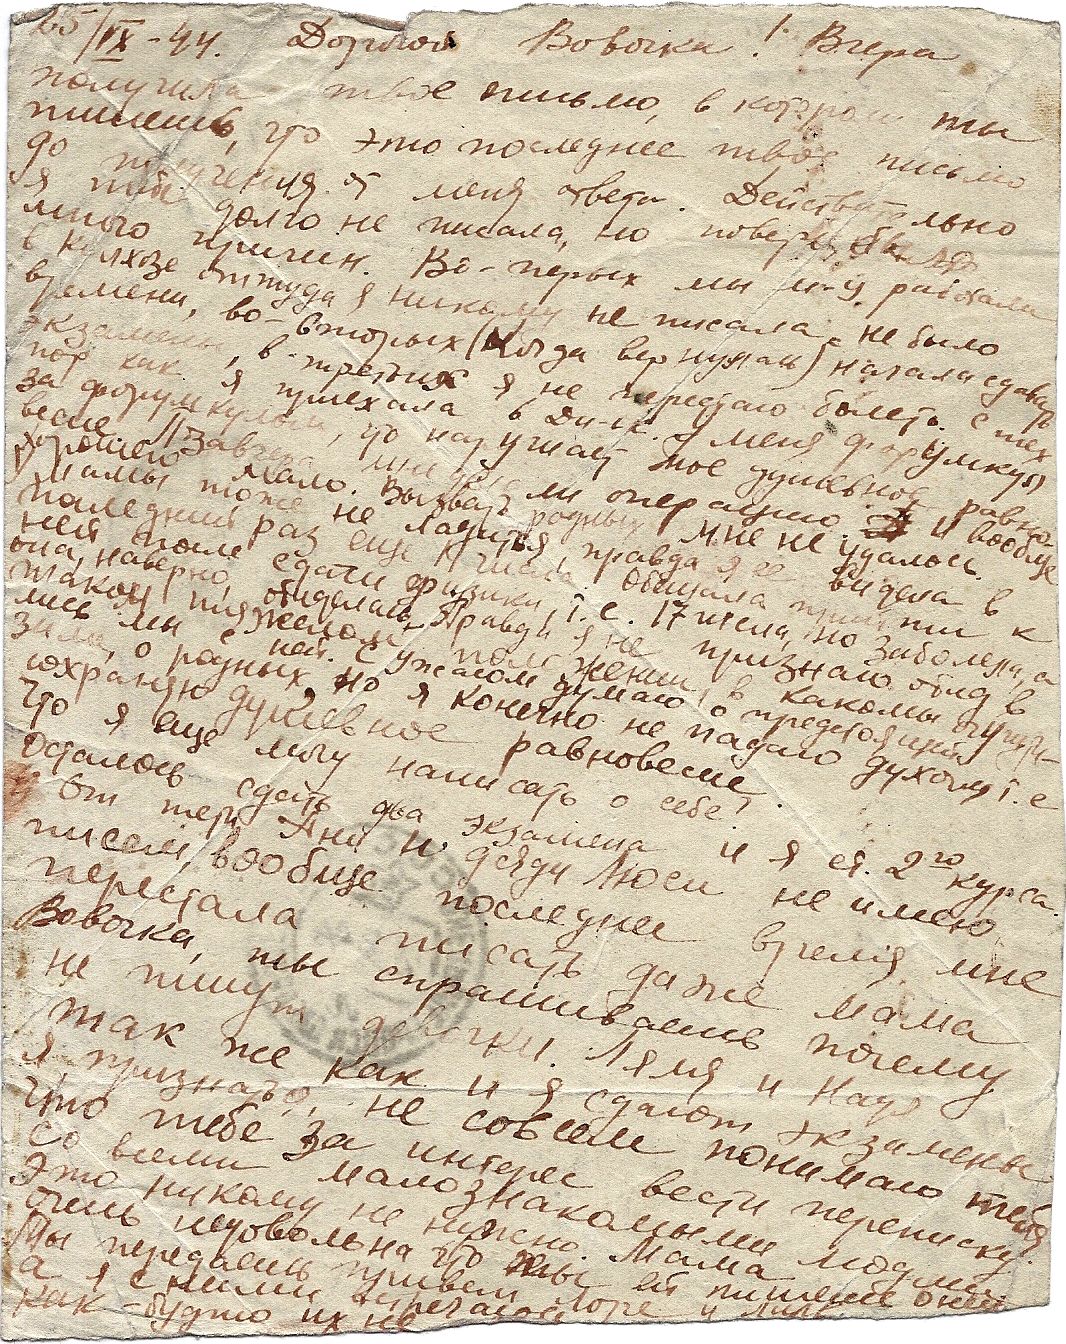 25/IX-44. Дорогой Вовочка! Вчера
получила твое письмо, в котором ты
пишешь, что это последнее твое письмо
до получения от меня ответа. Действительно
я тебе долго не писала, но поверь, было
много причин. Во-первых мы м-ц работали
в колхозе оттуда я никому не писала, не было
времени, во-вторых (когда вернулась) начала сдавать
экзамены, в-третьих я не перестаю болеть. С тех
пор как я приехала в Дн-к. у меня фурункул
за фурункулом, что нарушает мое душевное равно-
весие. Завчера мне делали операцию. И вообще
хорошего мало. Вызвать родных мне не удалось.
У мамы тоже не ладится, правда я ее видела в
последний раз еще числа. Обещала прийти к
ней после сдачи физики, т.е. 17 числа, но заболела, а
она, наверно, обиделась. Правда я не признаю обид в
таком тяжелом положении, в каком мы очути-
лись мы с ней. С ужасом думаю о предстоящей
зиме, о родных, но я конечно не падаю духом, т.е
сохраняю душевное равновесие.
Что я еще могу написать о себе?
Осталось сдать два экзамена и я ст. 2го курса.
От тети Ани и дяди Люси не имею
писем, вообще последнее время мне
перестала писать даже мама
Вовочка, ты спрашиваешь почему
не пишут девочки. Ляля и Надя
так же как и я сдают экзамены
Я признаться, не совсем понимаю тебя
что тебе за интерес вести переписку
со всеми малознакомыми людьми.
Это никому не нужно. Мама
очень недовольна что ты ей пишешь
Ты передаешь привет Лоре и
а я с ними встречаюсь
как-будто их не